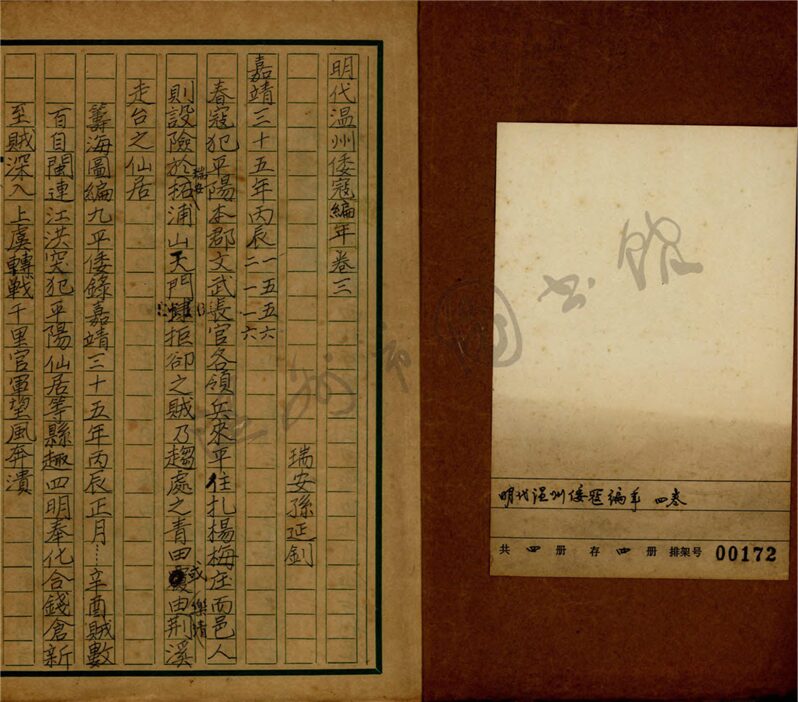 明代温州倭寇編年卷三
瑞安孫延釗
嘉靖三十五年丙辰 一五五六 二一一六
春寇犯平陽本郡文武長官各領兵來平住扎楊梅庄而邑人
瑞安 或 樂清
則設險於柘浦山天門拒卻之賊乃趨處之青田由荊溪
走台之仙居
籌海圖編九平倭錄嘉靖三十五年丙辰正月…辛酉賊數
百自閩連江洪突犯平陽仙居等縣趣四明奉化合錢倉新
至賊深入上虞轉戰千里官軍望風奔潰
明代温州倭寇編年 四卷
共 四 册 存 四 册 排架号 00172
温州市图书馆